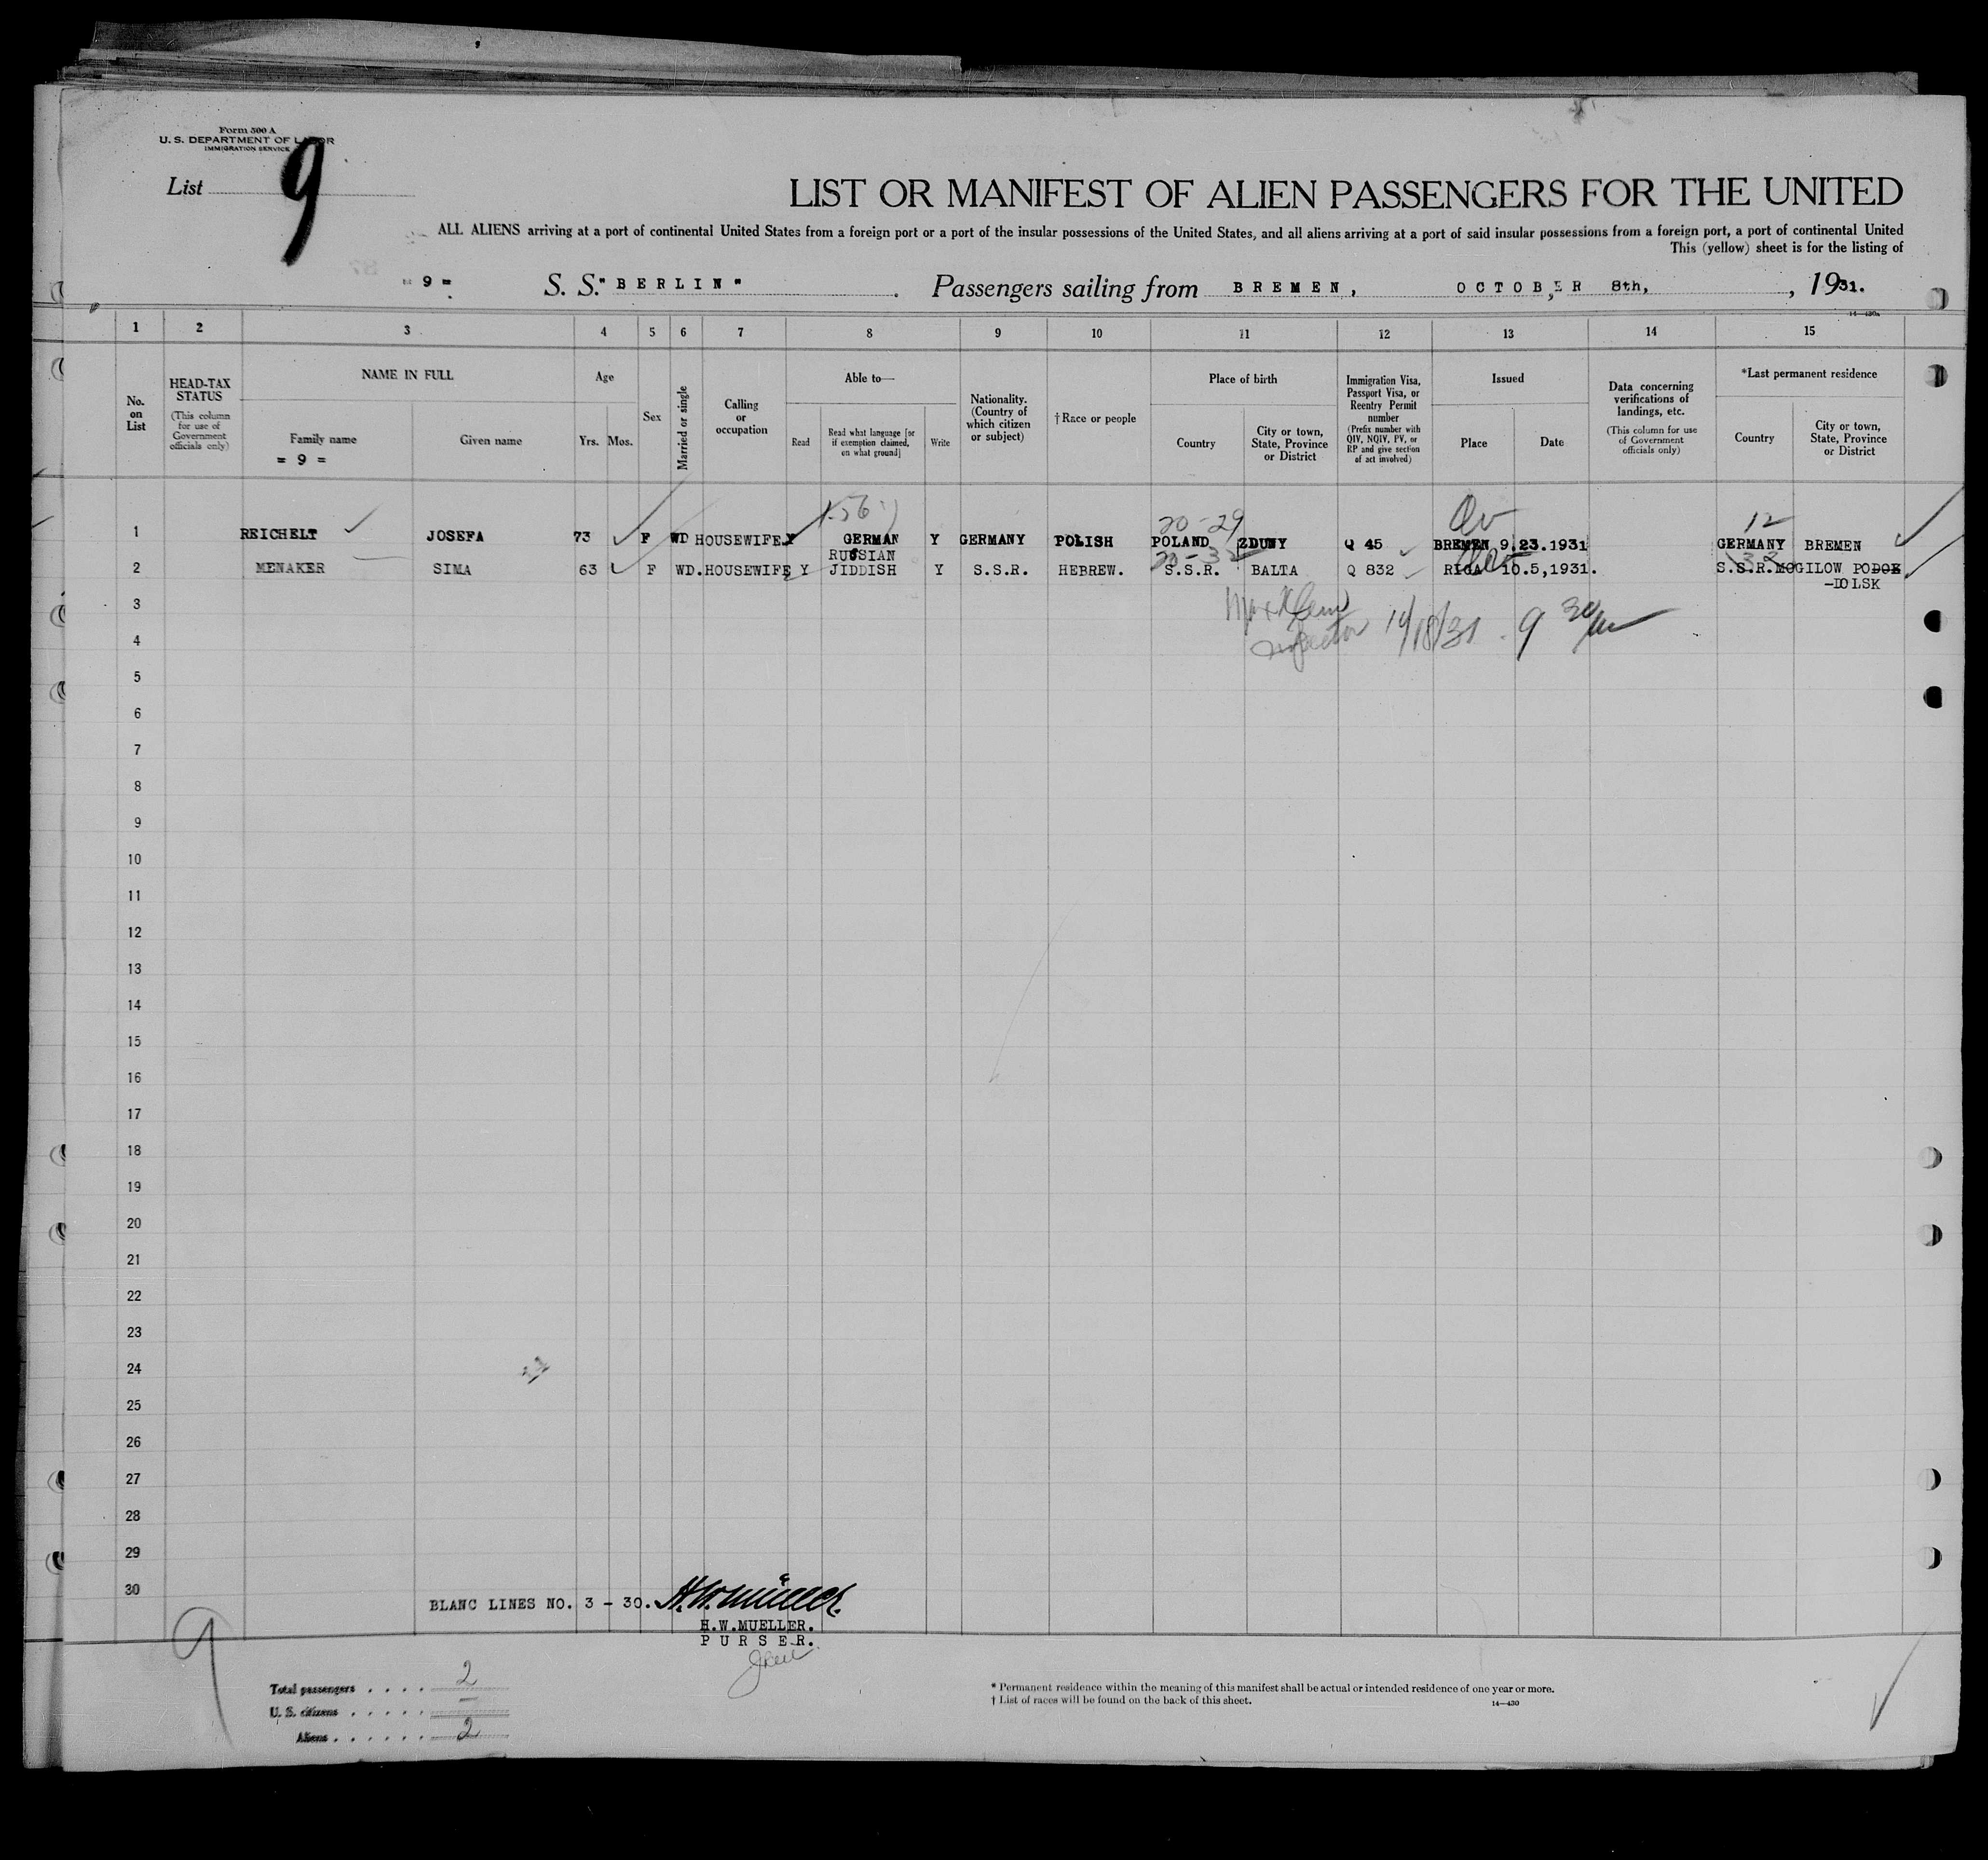 Form 500 A
U. S. DEPARTMENT OF LABOR
IMMIGRATION SERVICE
List 9
LIST OR MANIFEST OF ALIEN PASSENGERS FOR THE UNITED
ALL ALIENS arriving at a port of continental United States from a foreign port or a port of the insular possessions of the United States, and all aliens arriving at a port of said insular possessions from a foreign port, a port of continental United
This (yellow) sheet is for the listing of
= 9 = S. S. "BERLIN" Passengers sailing from BREMEN, OCTOBER 8th, , 1931.
14-430a
1 2 3 4 5 6 7 8 9 10 11 12 13 14 15
No. on List
HEAD-TAX STATUS
(This column for use of Government officials only)
NAME IN FULL
Family name
= 9 =
Given name
Age
Yrs. Mos.
Sex
Married or single
Calling or occupation
Able to—
Read
Read what language [or if exemption claimed, on what ground]
Write
Nationality. (Country of which citizen or subject)
†Race or people
Place of birth
Country
City or town, State, Province or District
Immigration Visa, Passport Visa, or Reentry Permit number
(Prefix number with QIV, NQIV, PV, or RP and give section of act involved)
Issued
Place
Date
Data concerning verifications of landings, etc.
(This column for use of Government officials only)
*Last permanent residence
Country
City or town, State, Province or District
20-29 12
1 REICHELT JOSEFA 73 F WD HOUSEWIFE Y GERMAN Y GERMANY POLISH POLAND ZDUNY Q 45 BREMEN 9.23.1931 GERMANY BREMEN
RUSSIAN
2 MENAKER SIMA 63 F WD. HOUSEWIFE Y JIDDISH Y S.S.R. HEBREW. S.S.R. BALTA Q 832 RIGA 10.5,1931. S.S.R. MOGILOW PODOK
-DOLSK
3
Inspector 10/18/31 9 30
4
5
6
7
8
9
10
11
12
13
14
15
16
17
18
19
20
21
22
23
24
25
26
27
28
29
30
BLANC LINES NO. 3 - 30. H.W. Müller
H.W.MUELLER.
PURSER.
9
Total passengers . . . . 2
U. S. citizens . . . . . —
Aliens . . . . . . 2
* Permanent residence within the meaning of this manifest shall be actual or intended residence of one year or more.
† List of races will be found on the back of this sheet.
14-430